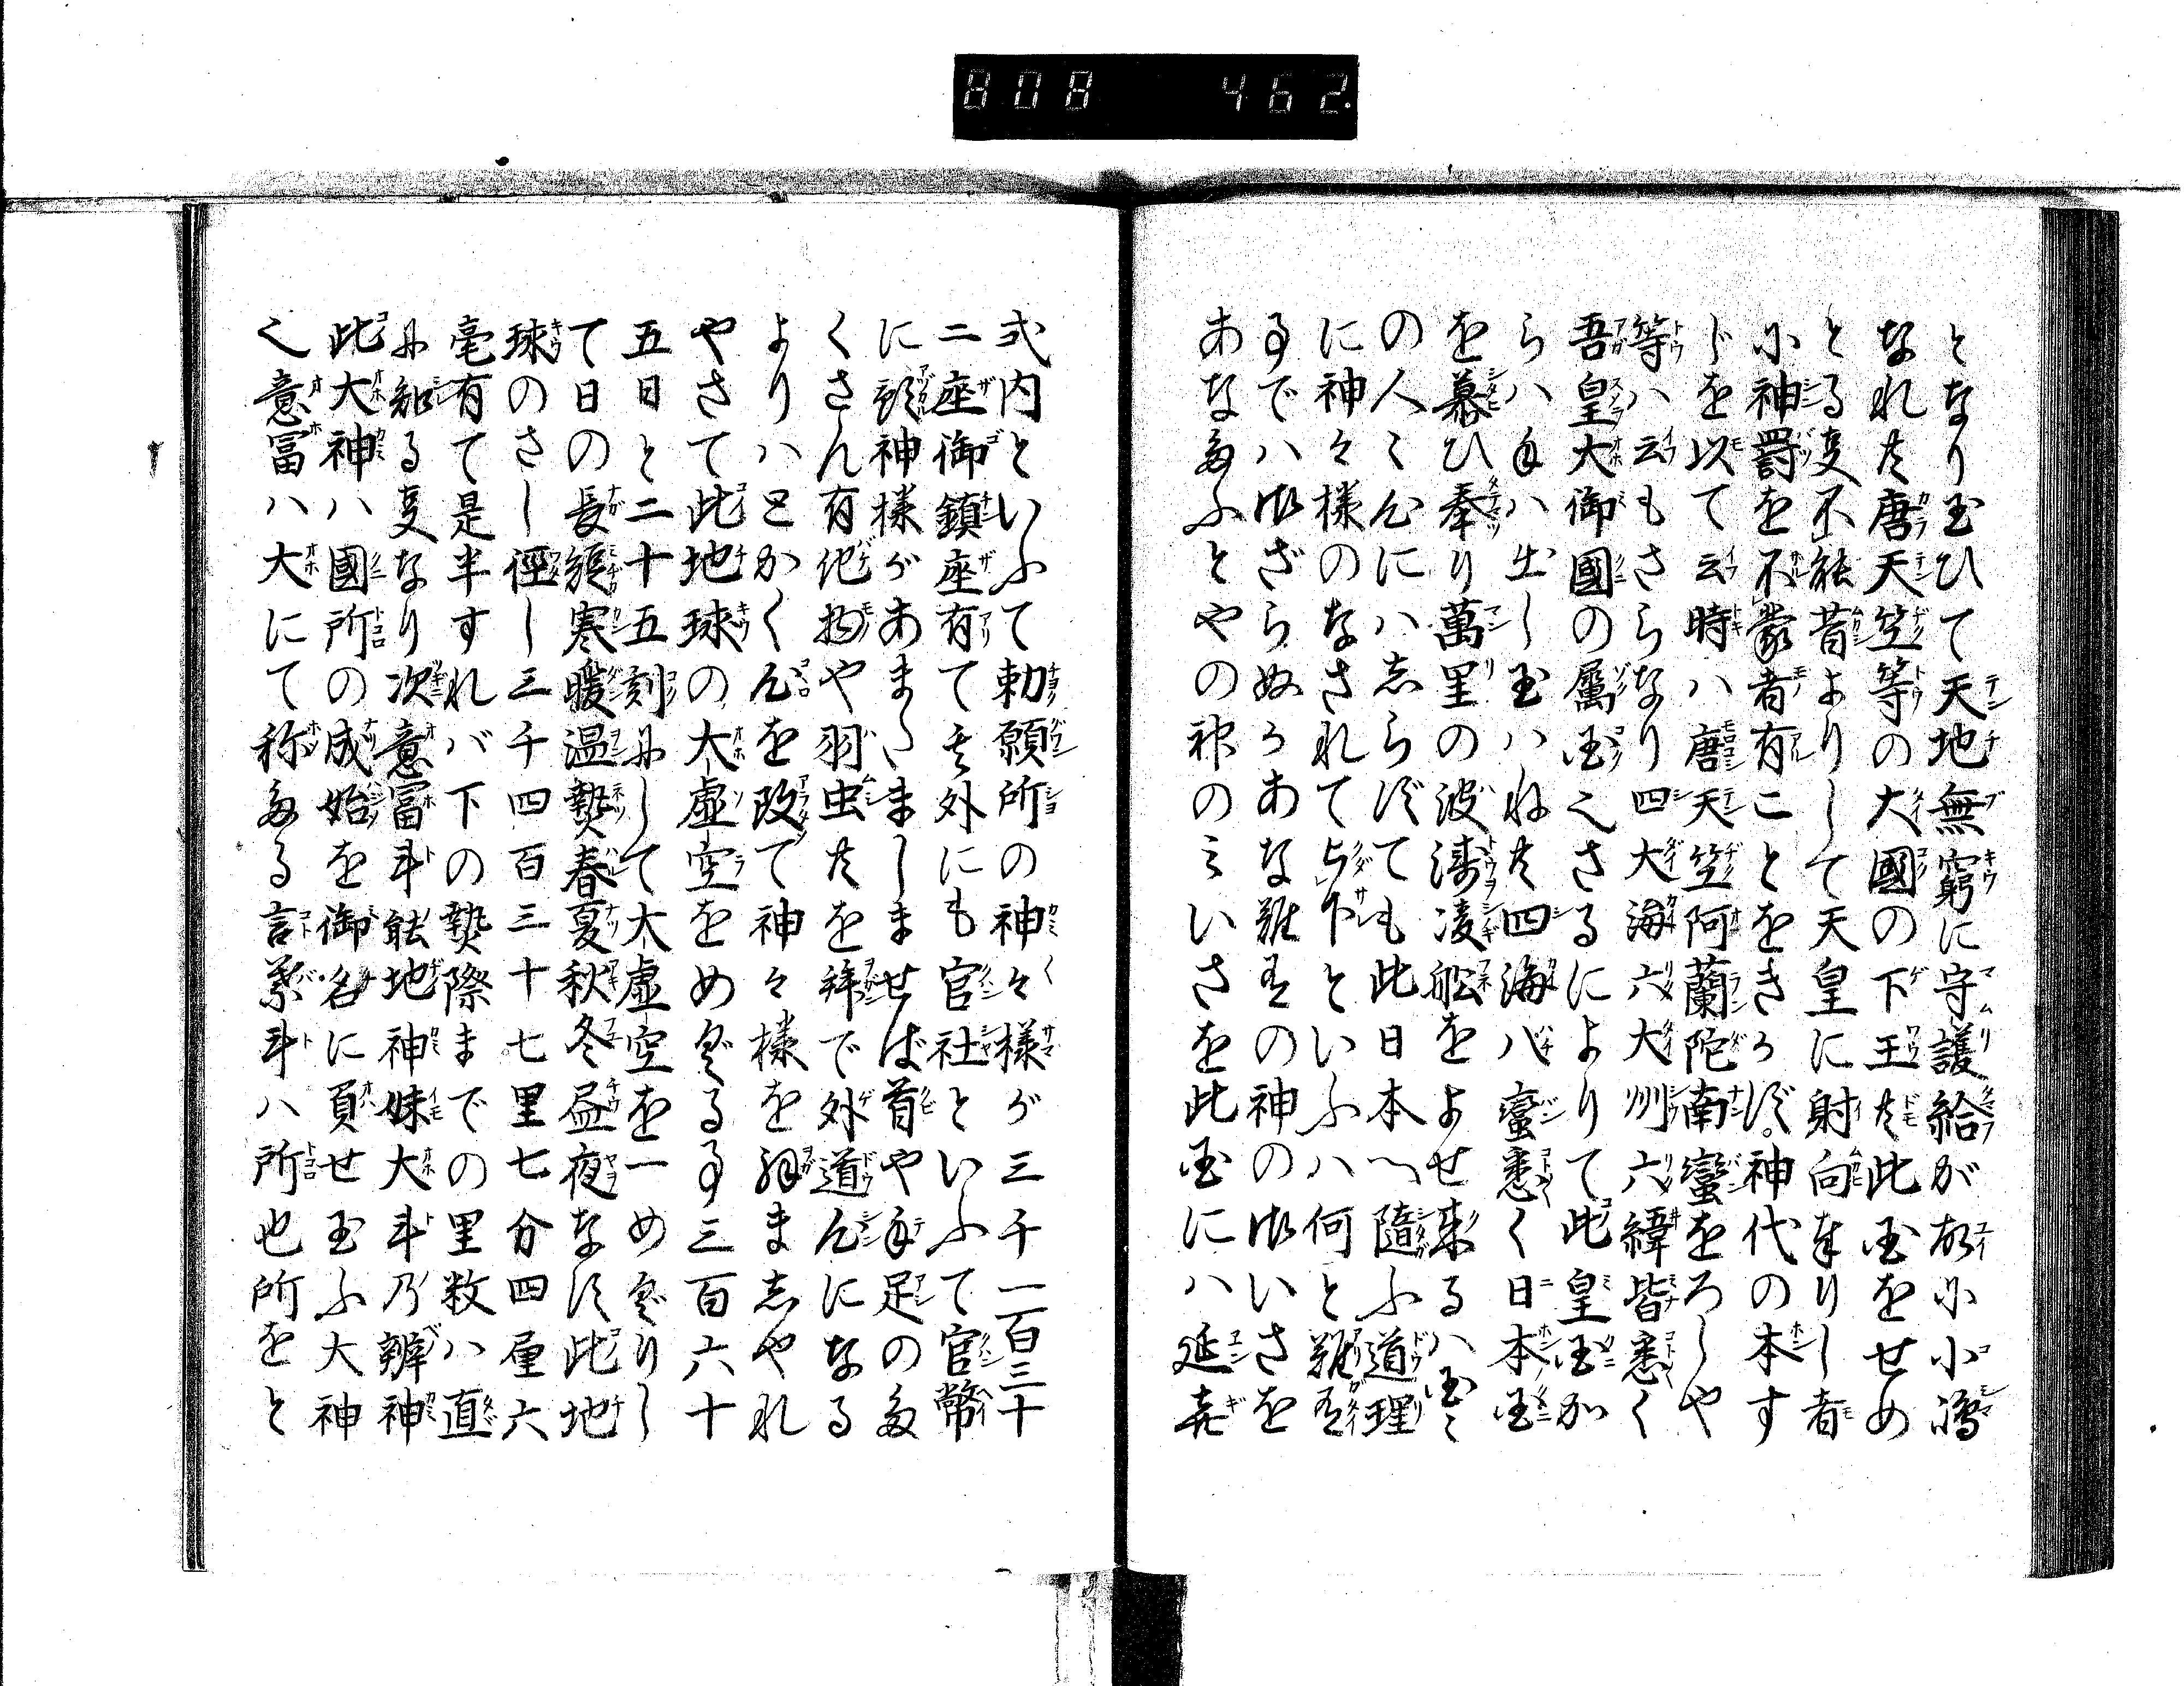 808 462.
となり玉ひて天地無窮に守護給が故小小嶋
なれ共唐天笠等の大國の下王共此国をせめ
とる叓不能昔よりして天皇に射向奉りし者
小神罸を不蒙者有ことをきかず。神代の本す
じを以て云時ハ唐天笠阿蘭陀南蠻をろしや
等ハ云もさらなり四大海六大州六緯皆悉く
吾皇大御國の属国くさるによりて此皇国か
らハ手ハ出し玉ハね共四海八蛮悉く日本国
を慕ひ奉り萬里の波涛凌舩をよせ来るハ国〻
の人〻心にハ志らずても此日本へ隨ふ道理
に神々様のなされて与下といふハ何と難有
事でハ御ざらぬかあな難有の神の御いさを
あな多ふとやの神のミいさを此国にハ延㐂
式内といふて勅願所の神々様が三千一百三十
二座御鎮座有て其外にも官社といふて官幣
に預神様があまたましませば首や手足の多
くさん有化物や羽虫共を拜で外道心になる
よりハとかく心を改て神々様を拜ま志やれ
やさて此地球の大虚空をめぐる事三百六十
五日と二十五刻にして大虚空を一めぐりし
て日の長短寒暖温𤍠春夏秋冬昼夜なす此地
球のさし徑し三千四百三十七里七分四厘六
毫有て是半すれバ下の𤍠際までの里数ハ直
に知る叓なり次意冨斗能地神妹大斗乃辨神
此大神ハ國所の成始を御名に負せ玉ふ大神
く意冨ハ大にて称多る言葉斗ハ所也所をと